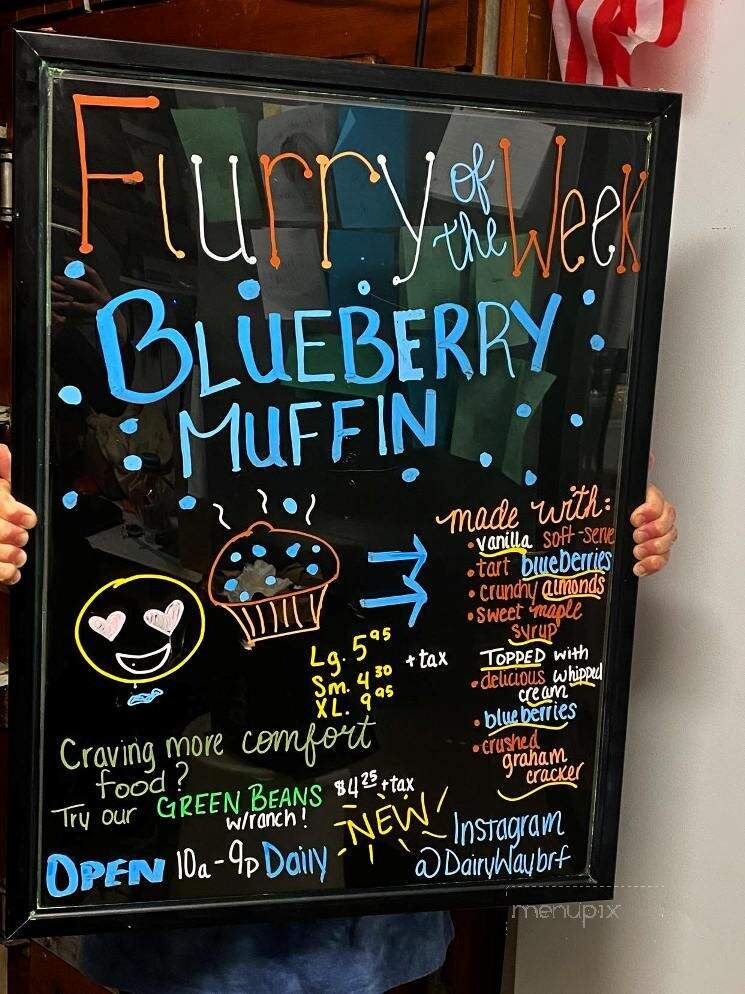 Flurry of the Week
BLUEBERRY
MUFFIN
made with:
• vanilla soft-serve
• tart blueberries
• crunchy almonds
• sweet maple
syrup
TOPPED with
• delicious whipped
cream
• blueberries
• crushed
graham
cracker
Lg. 5⁹⁵
Sm. 4³⁰ + tax
XL. 9⁹⁵
Craving more comfort
food?
Try our GREEN BEANS $4²⁵ + tax
w/ranch!
NEW!
OPEN 10a-9p Daily
Instagram
@DairyWaybrf
menupix